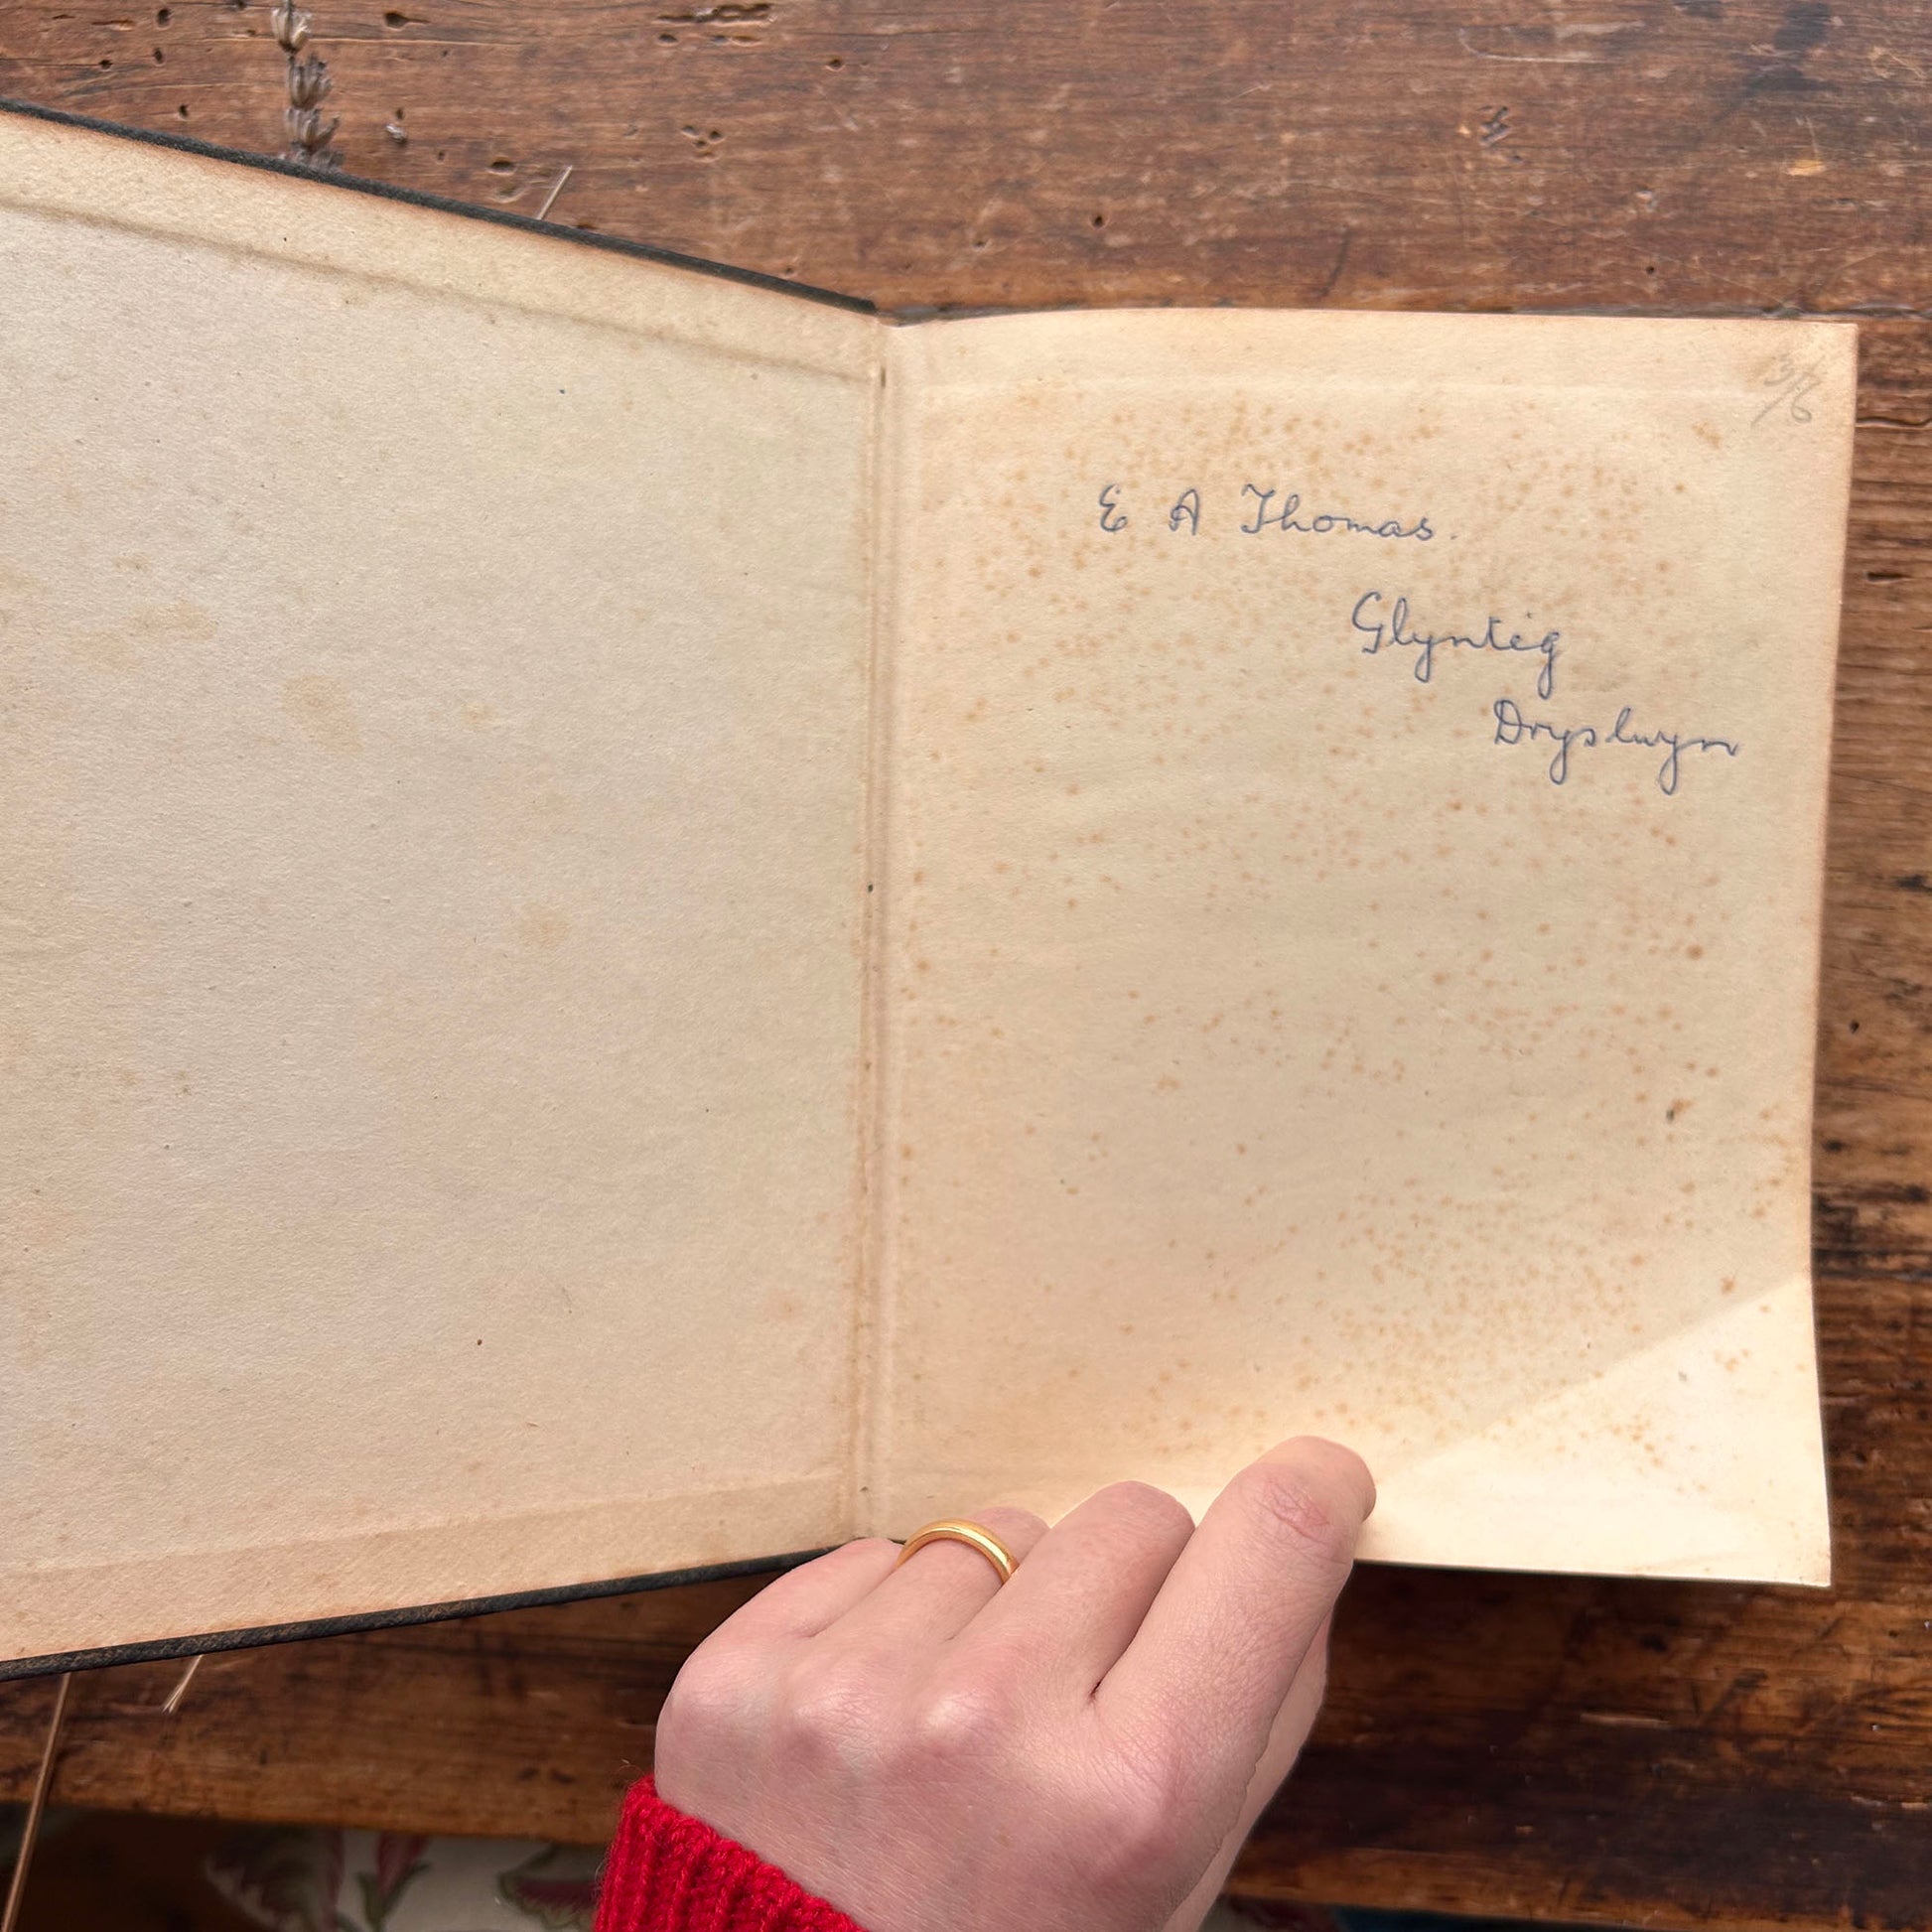 3/6
E A Thomas.
Glynteg
Dryslwyn